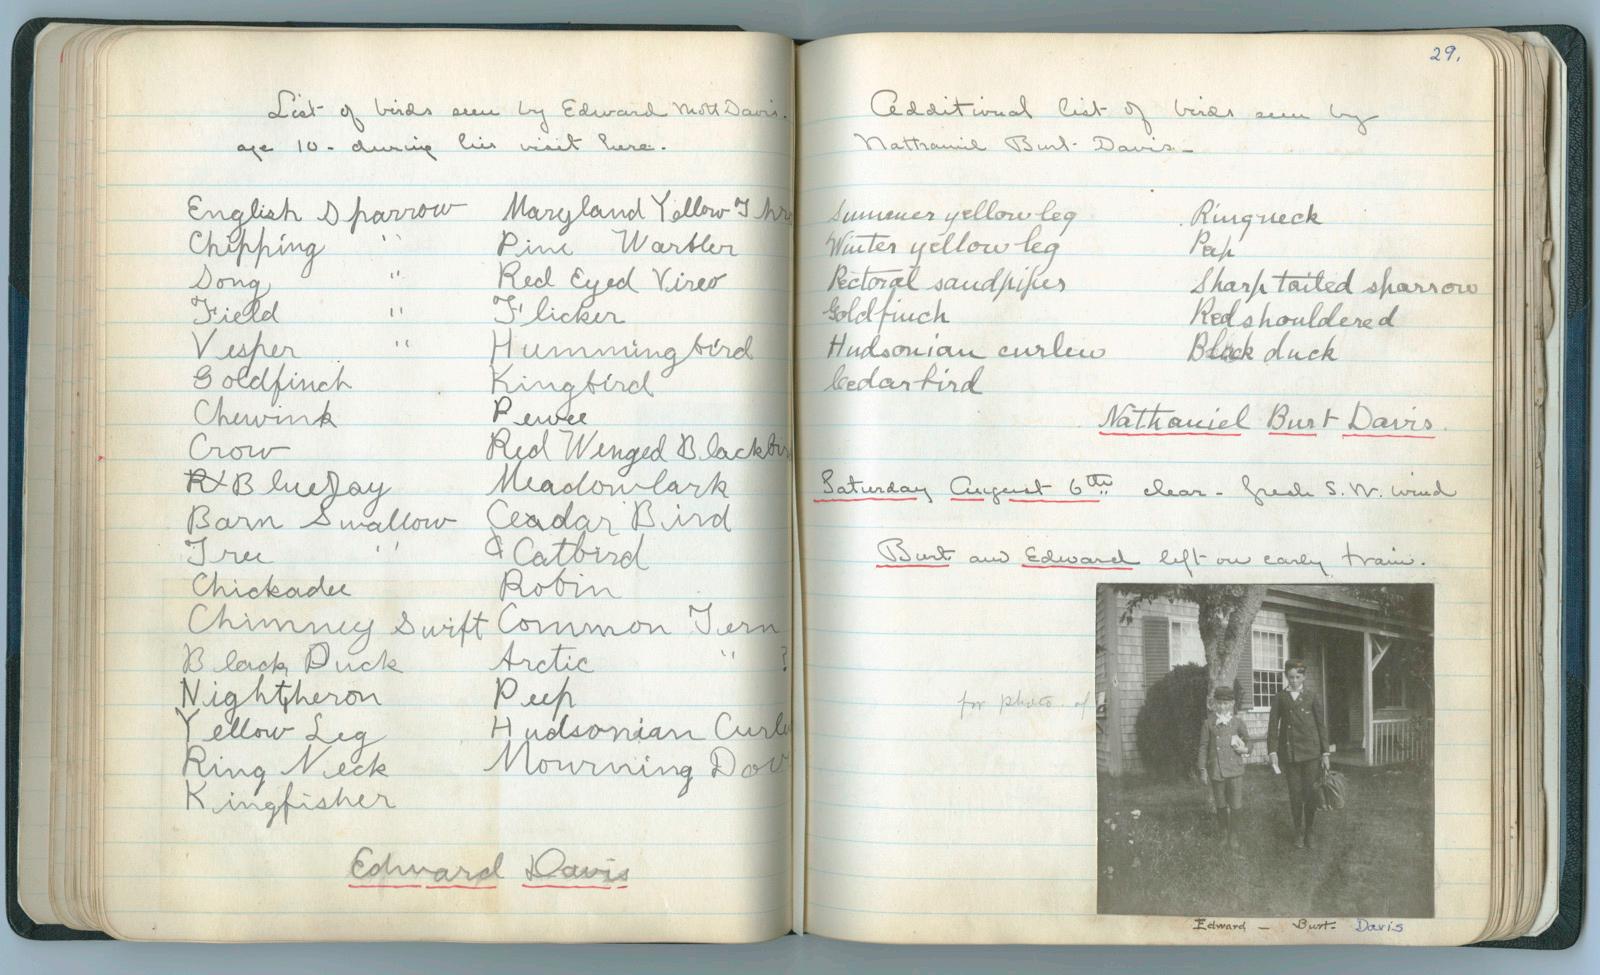 List of birds seen by Edward Mott Davis.
age 10 - during his visit here.
English Sparrow
Chipping "
Song "
Field "
Vesper "
Goldfinch
Chewink
Crow
Blue Jay
Barn Swallow
Tree "
Chickadee
Chimney Swift
Black Duck
Night heron
Yellow Leg
Ring Neck
Kingfisher
Maryland Yellow Thr
Pine Warbler
Red Eyed Vireo
Flicker
Hummingbird
Kingbird
Pewee
Red Winged Blackbir
Meadowlark
Ceadar Bird
Catbird
Robin
Common Tern
Arctic " ?
Peep
Hudsonian Curle
Mourning Dov
Edward Davis
29.
Additional list of birds seen by
Nathaniel Burt Davis -
Summer yellow leg
Winter yellow leg
Pectoral sandpiper
Goldfinch
Hudsonian curlew
Cedarbird
Ringneck
Peep
Sharp tailed sparrow
Redshouldered
Black duck
Nathaniel Burt Davis.
Saturday August 6th clear - fresh S.W. wind
Burt and Edward left on early train.
for photo of
Edward - Burt - Davis